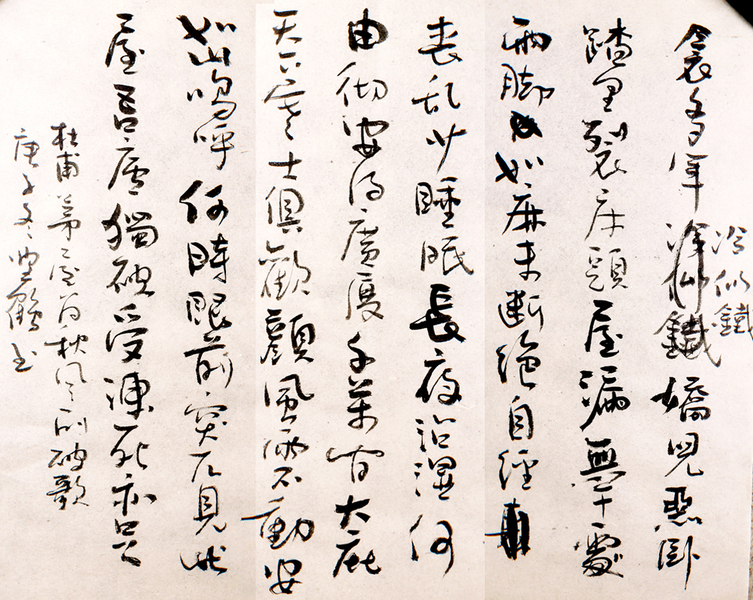 冷似鐵
衾多年冷似鐵嬌兒惡臥
踏里裂床頭屋漏無干處
雨脚如麻未斷絕自經
喪乱少睡眠長夜沾濕何
由彻安得廣厦千萬间大庇
天下寒士俱歡顏風雨不動安
如山嗚呼何時眼前突兀見此
屋吾廬獨破受凍死亦足
杜甫茅屋为秋风所破歌
庚子冬鶴书